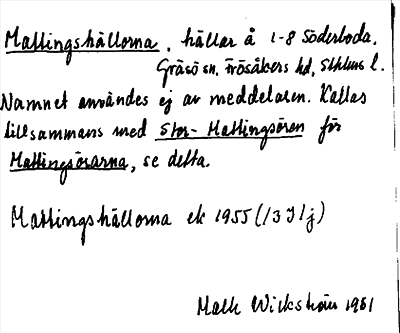 Mattingshällorna, hällar å 1-8 Söderboda,
Gräsö sn, Frösåkers hd, Sthlms l.
Namnet användes ej av meddelaren. Kallas
tillsammans med Stor-Mattingsören för
Mattingsörarna, se detta.
Mattingshällorna ek 1955 (13 I 1j)
Wickström 1961